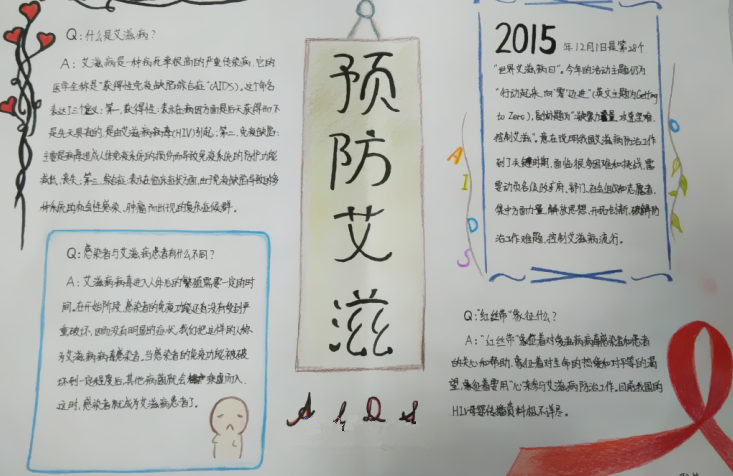 Q:什么是艾滋病?
A:艾滋病是一种病死率极高的严重传染病,它的
医学全称是"获得性免疫缺陷综合征"(AIDS)。这个名
表达了三个定义:第一,获得性:表示在病因方面是后天获得而不
是先天具有的,是由艾滋病病毒(HIV)引起;第二,免疫缺陷:
主要是病毒造成人体免疫系统的损伤而导致免疫系统的防护功能
减低、丧失;第三,综合征:表示在临床症状方面,由于免疫缺陷导致的
系统的机会性感染、肿瘤而出现的复杂症候群。
Q:感染者与艾滋病患者有什么不同?
A:艾滋病病毒进入人体后的繁殖需要一定的时
间。在开始阶段,感染者的免疫功能还没有受到严
重破坏,因而没有明显的症状,我们把这样的人称
为艾滋病病毒感染者。当感染者的免疫功能被破
坏到一定程度后,其他病菌就会乘虚而入,
这时,感染者就成为艾滋病患者了。
预防艾滋
AIDS
2015年12月1日是第28个
"世界艾滋病日"。今年的活动主题仍为
"行动起来,向'零'迈进"(英文主题为Getting
to Zero),副标题为"凝聚力量,攻坚克难,
控制艾滋"。意在说明我国艾滋病防治工作
到了关键时期,面临很多困难和挑战,需
要动员各级政府、部门、社会组织和志愿者,
集中方面力量,解放思想,开拓创新,破解防
治工作难题,控制艾滋病流行。
AIDS
Q:"红丝带"象征什么?
A:"红丝带"象征着对艾滋病病毒感染者和患者
的关心和帮助,象征着对生命的热爱和对平等的渴
望,象征着要用"心"来参与艾滋病防治工作。目前我国的
HIV母婴传播资料尚不详尽。